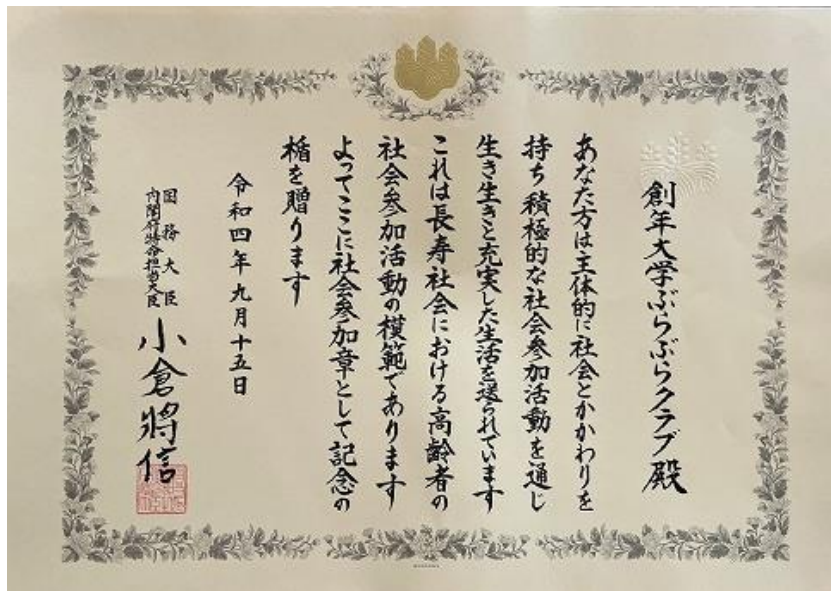 創年大学ぶらぶらクラブ殿
あなた方は主体的に社会とかかわりを
持ち積極的な社会参加活動を通じ
生き生きと充実した生活を送られています
これは長寿社会における高齢者の
社会参加活動の模範であります
よってここに社会参加章として記念の
楯を贈ります
令和四年九月十五日
国務大臣
内閣府特命担当大臣
小倉將信